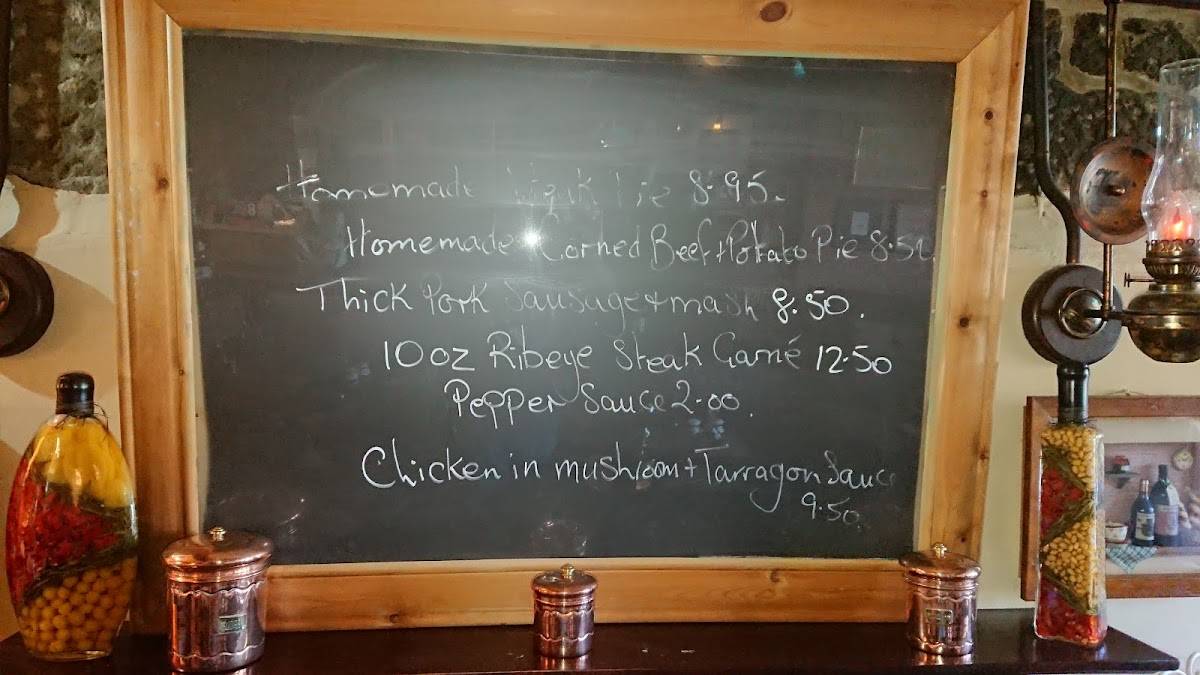 Homemade Pie 8.95.
Homemade Corned Beef + Potato Pie 8.50
Thick Pork Sausage + mash 8.50.
10oz Ribeye Steak Garné 12.50
Pepper Sauce 2.00.
Chicken in mushroom + Tarragon Sauce
9.50